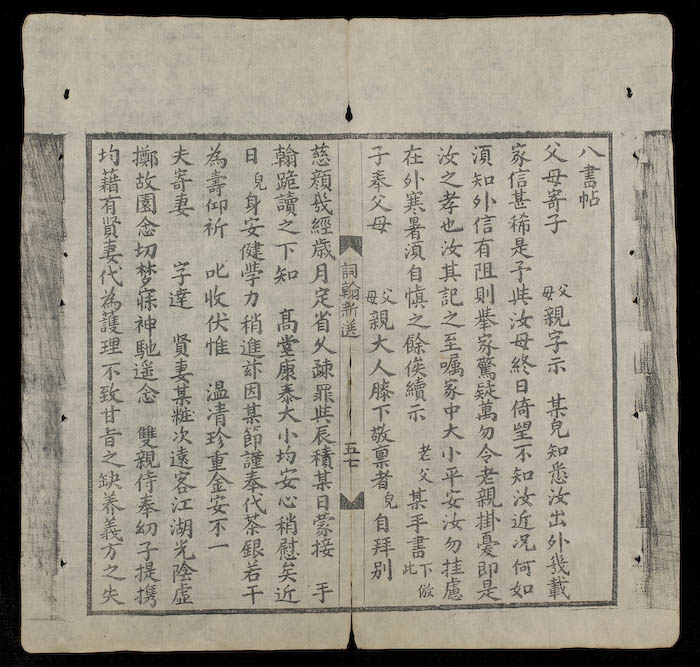 八書帖
父母寄子 父母親字示 某兒知悉汝出外幾載
家信甚稀是予與汝母終日倚望不知汝近况何如
須知外信有阻則舉家驚疑萬勿令老親掛憂即是
汝之孝也汝其記之至囑家中大小平安汝勿挂慮
在外寒暑須自慎之餘俟續示 老父某手書 下倣此
子奉父母 父母親大人膝下敬禀者兒自拜別
詞翰新選 五七
慈顏幾經歲月定省久疎罪與辰積某日蒙接 手
翰跪讀之下知 高堂康泰大小均安心稍慰矣近
日兒身安健學力稍進茲因某節謹奉代茶銀若干
為壽仰祈 叱收伏惟 温清珍重金安不一
夫寄妻 字達 賢妻某粧次遠客江湖光陰虛
擲故園念切梦寐神馳遥念 雙親侍奉幼子提携
均藉有賢妻代為護理不致甘旨之缺養義方之失